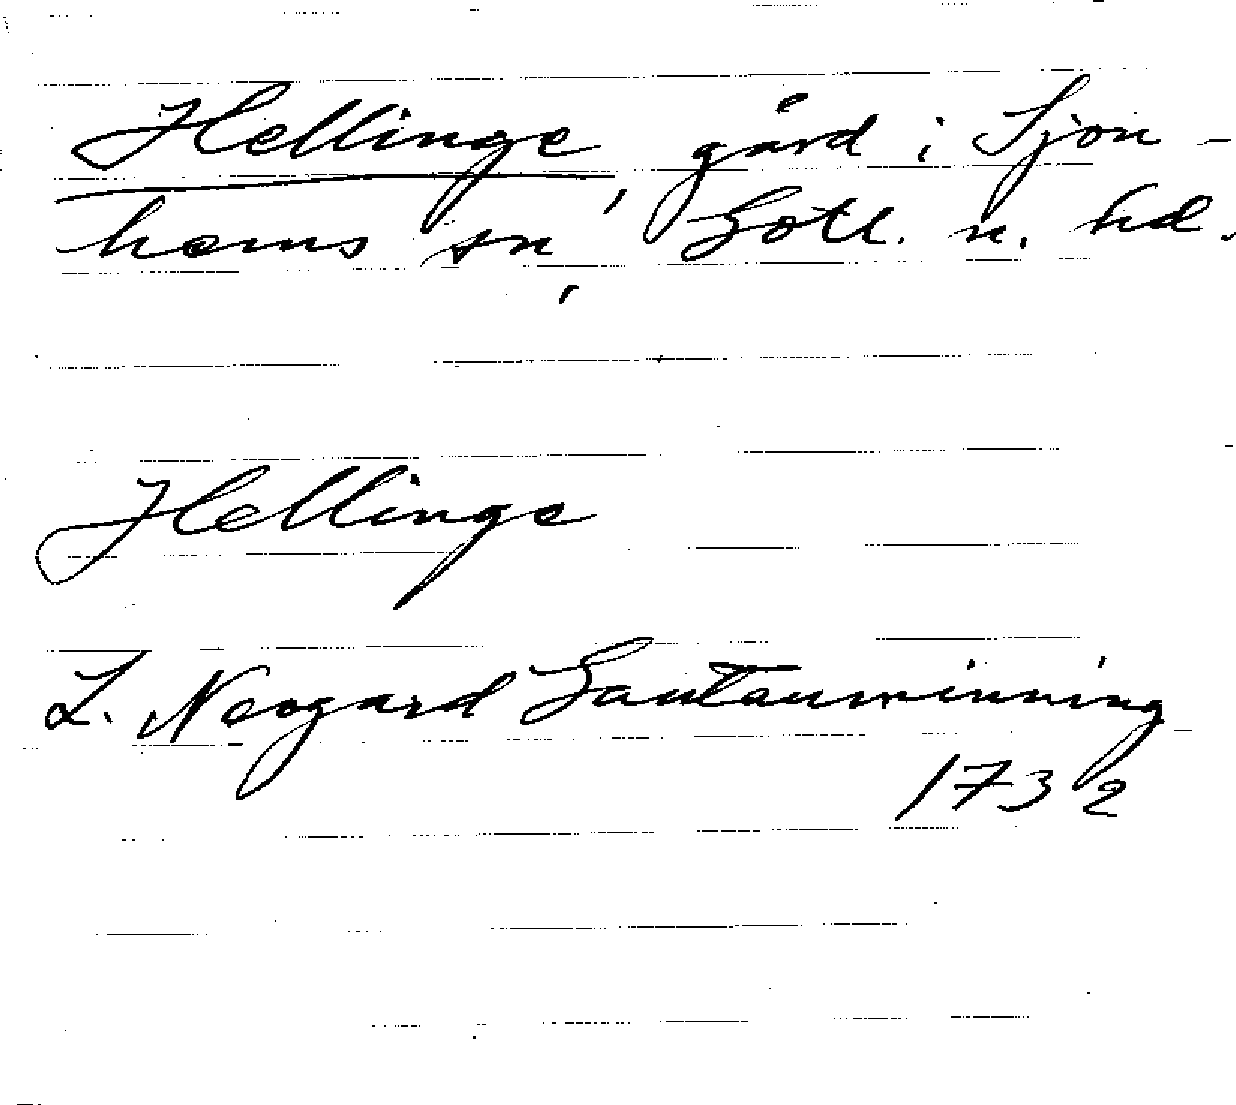 Hellinge, gård i Sjon-
hems sn, Gotl. n. hd.
Hellinge
L. Neogard Gautauminning
1732